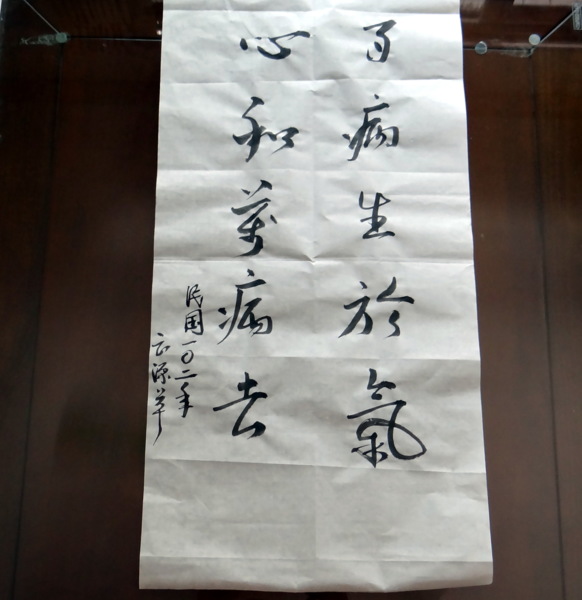 百病生於氣
心和萬病去
民国一〇二年
源草